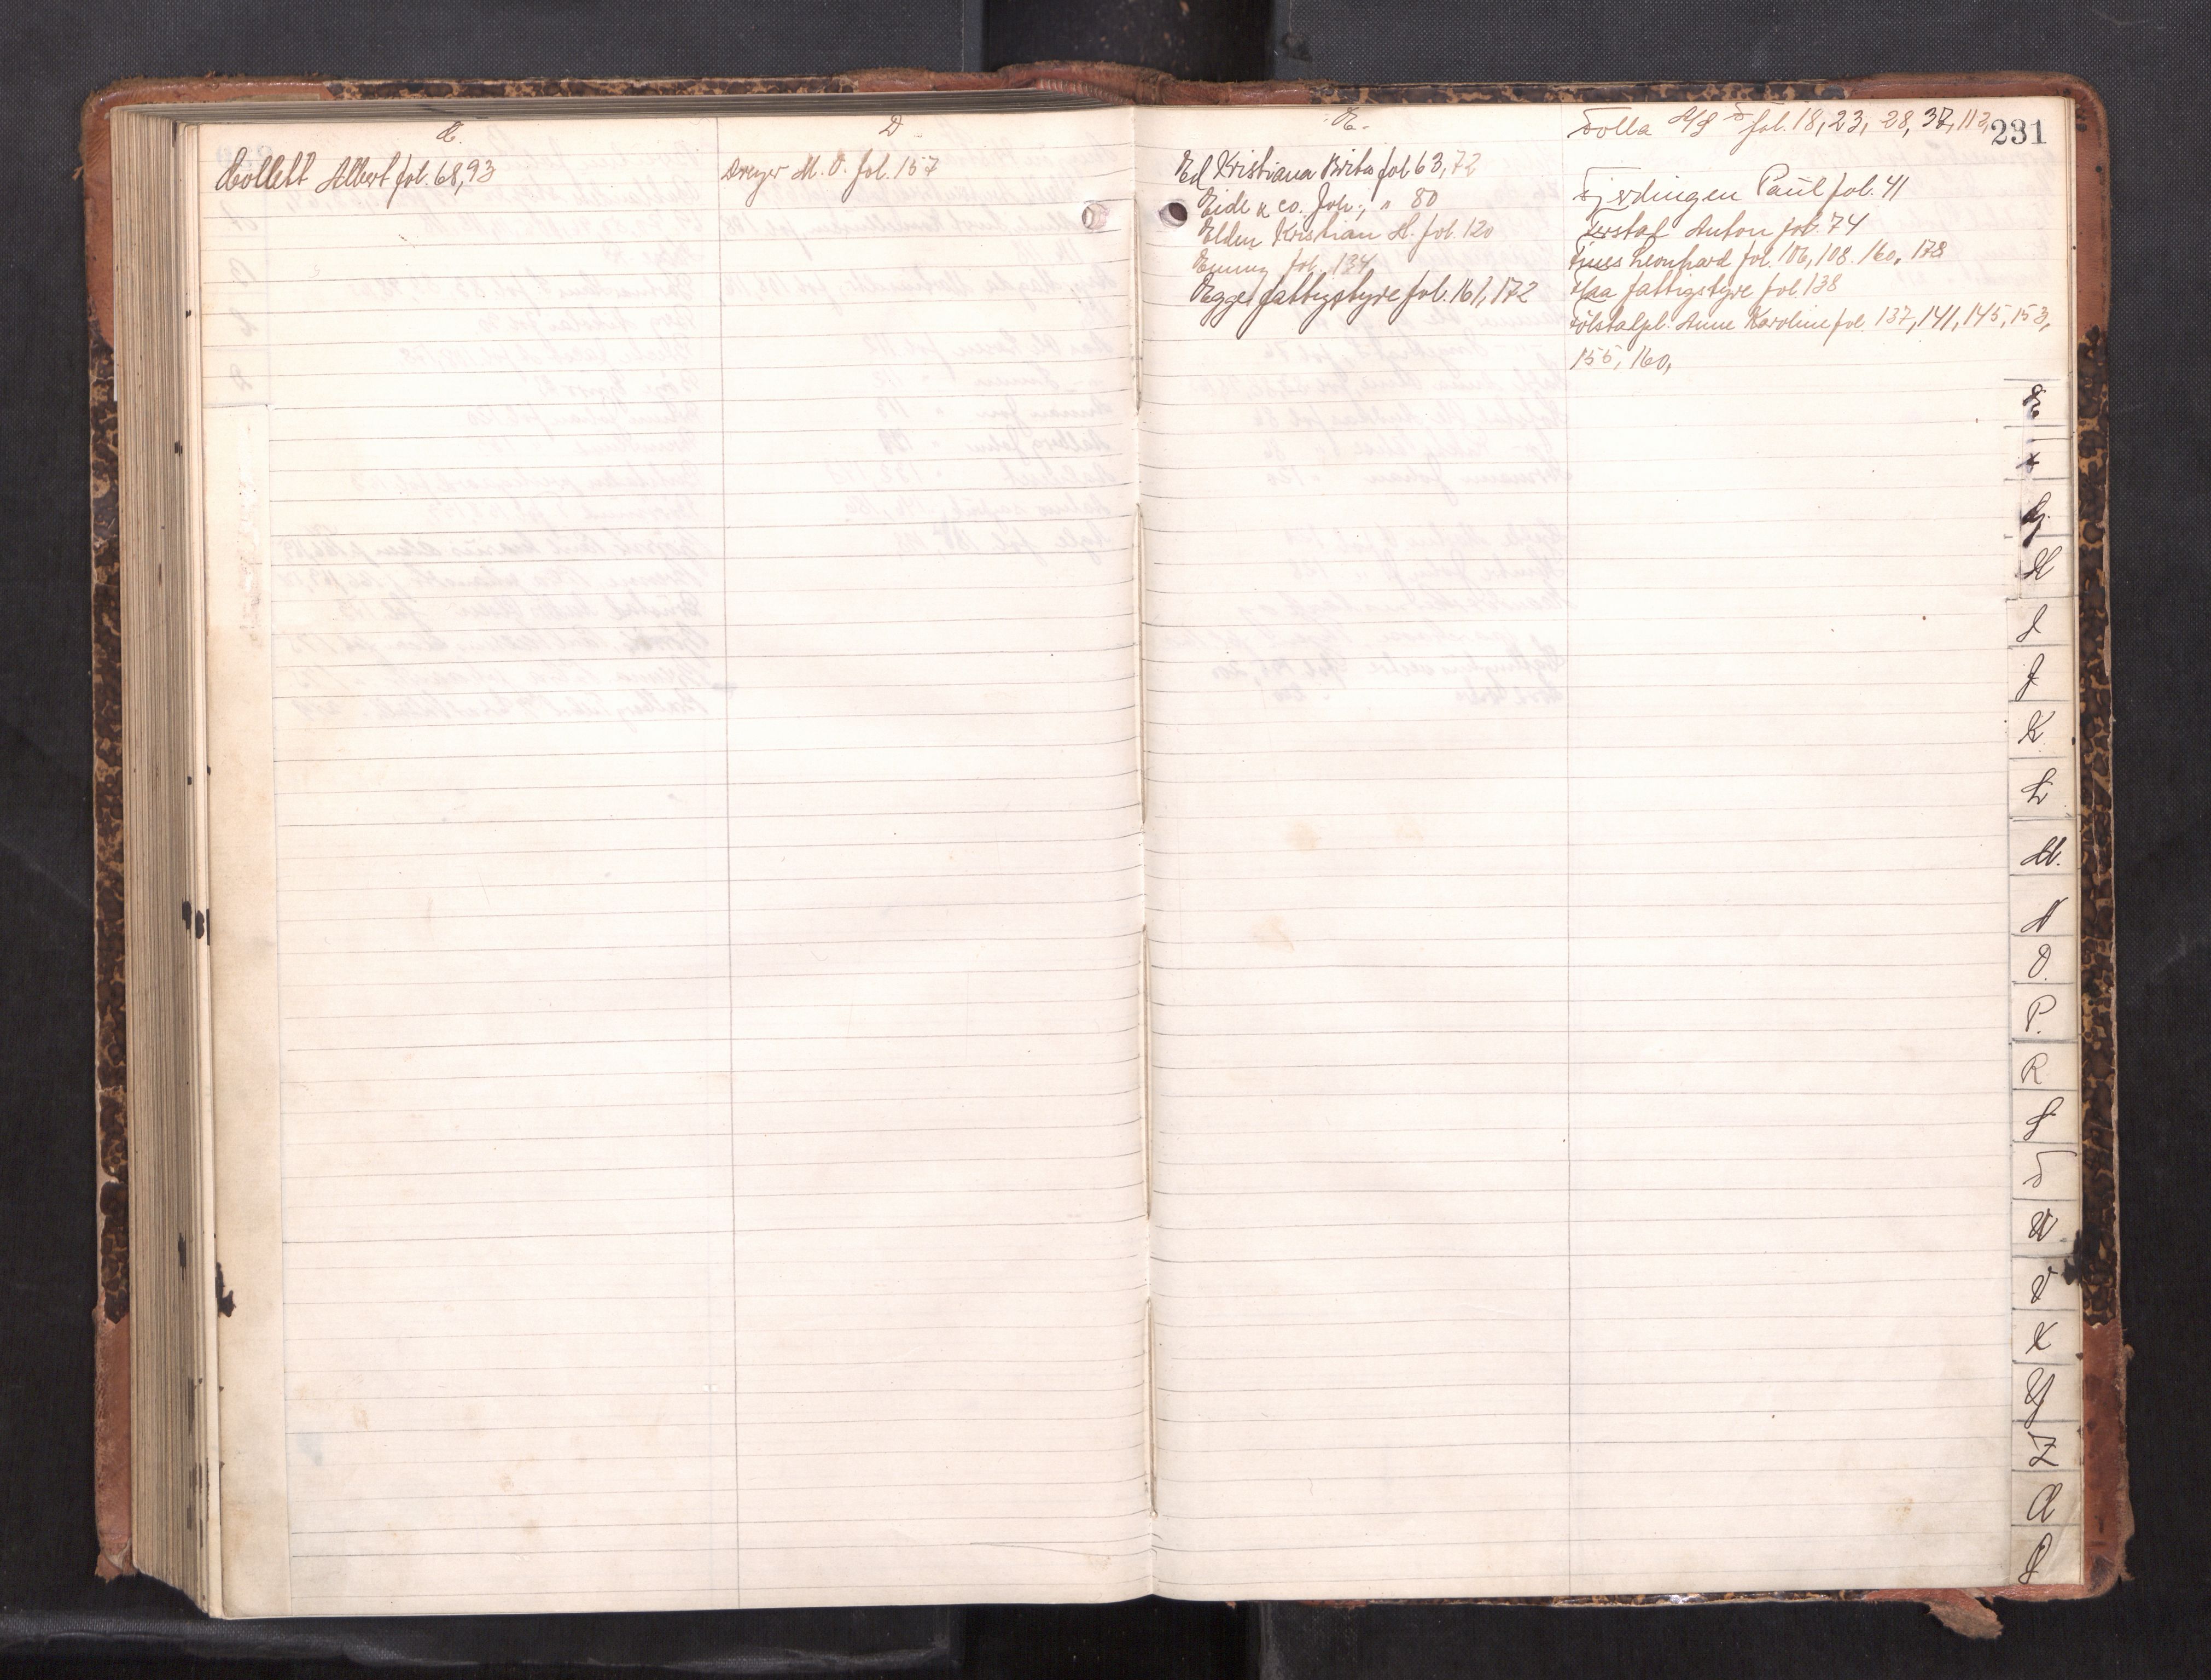 C.
Collett Albert fol. 68, 93
D
Dreyer M. O. fol. 157
E.
Ed Kristiana Brita fol 63, 72
Eide & co. Joh., " 80
Elden Kristian H. fol. 120
Emmy fol. 134
Egge fattigstyre fol. 161, 172
F
Folla A/S fol. 18, 23, 28, 37, 113,
231
Fjerdingen Paul fol. 41
Anton fol. 74
Fines Leonhard fol. 106, 108. 160, 178
fattigstyre fol. 138
Anne Karoline fol. 137, 141, 145, 153,
155, 160,
E
F
G.
H
I
J
K
L
M.
N
O.
P.
R
S
T
U
V
X
Y
Z
Æ
Ø